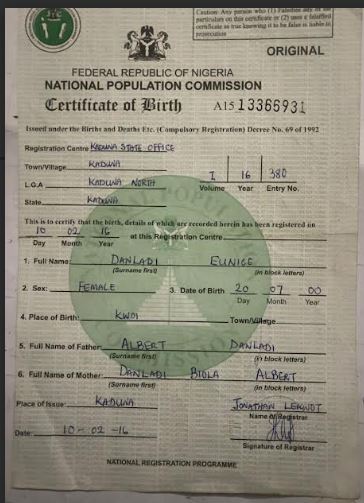 Caution: Any person who (1) Falsifies any of the
particulars on this certificate or (2) uses a falsified
certificate as true knowing it to be false is liable to
prosecution
ORIGINAL
FEDERAL REPUBLIC OF NIGERIA
NATIONAL POPULATION COMMISSION
Certificate of Birth A15 13366931
Issued under the Births and Deaths Etc. (Compulsory Registration) Decree No. 69 of 1992
Registration Centre KADUNA STATE OFFICE
Town/Village KADUNA
I 16 380
L.G.A KADUNA NORTH Volume Year Entry No.
State KADUNA
This is to certify that the birth, details of which are recorded herein has been registered on
10 02 16 at this Registration Centre
Day Month Year
1. Full Name: DANLADI EUNICE
(Surname first) (in block letters)
2. Sex: FEMALE 3. Date of Birth 20 07 00
Day Month Year
4. Place of Birth: KWOI Town/Village
5. Full Name of Father: ALBERT DANLADI
(Surname first) (in block letters)
6. Full Name of Mother: DANLADI BIOLA ALBERT
(Surname first) (in block letters)
Place of Issue: KADUNA JONATHAN
Name of Registrar
Date: 10-02-16
Signature of Registrar
NATIONAL REGISTRATION PROGRAMME